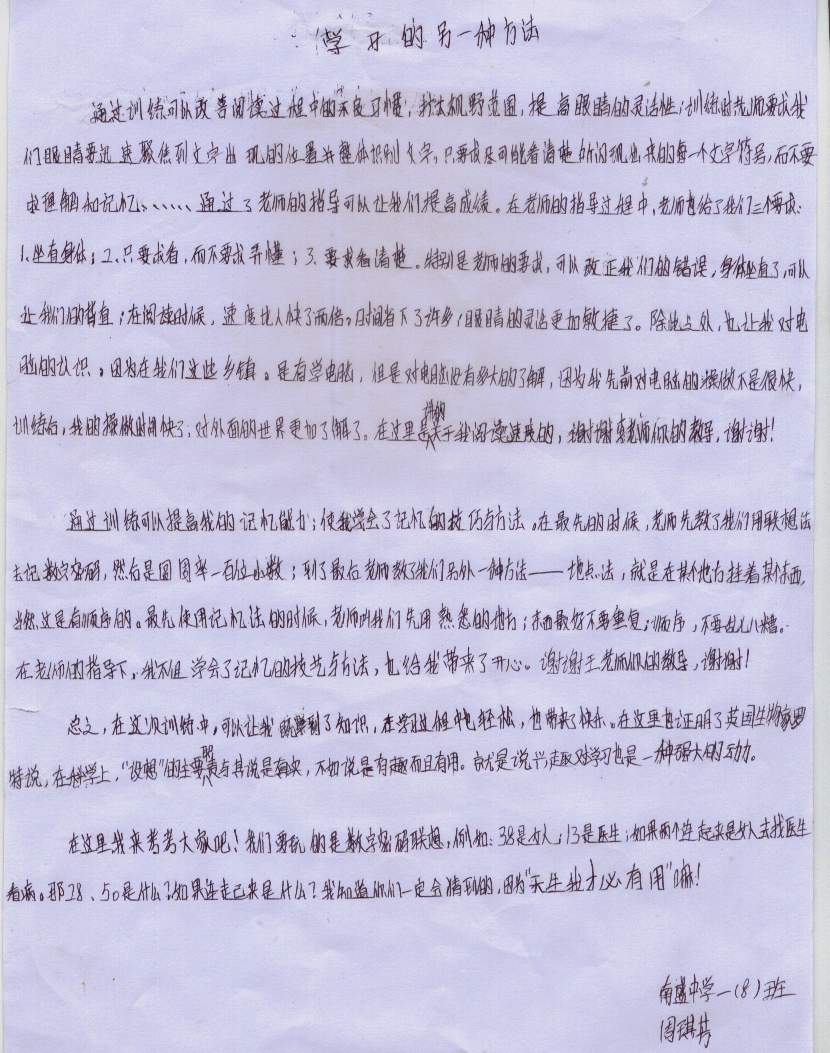 学习的另一种方法
通过训练可以改善阅读过程中的不良习惯，扩大视野范围，提高眼睛的灵活性；训练时老师要求我
们眼睛要迅速聚焦到文字出现的位置并整体识别文字，只要求尽可能看清楚所闪现出来的每一个文字符号，而不要
求理解和记忆、……通过了老师的指导可以让我们提高成绩。在老师的指导过程中，老师也给了我们三个要求：
1.坐直身体；2.只要求看，而不要求弄懂；3.要求看清楚。特别是老师的要求，可以改正我们的错误，身体坐直了，可以
让我们的背直；在阅读时候，速度比人快了两倍。时间省下了许多，眼睛的灵活更加敏捷了。除此之外，也让我对电
脑的认识。因为在我们这些乡镇。是有学电脑，但是对电脑没有多大的了解，因为我先前对电脑的操做不是很快，
训练后，我的操做时间快了，对外面的世界更加了解了。在这里是关于我阅读速度的，谢谢老师你的教导，谢谢！
通过训练可以提高我的记忆能力；使我学会了记忆的技巧与方法。在最先的时候，老师先教了我们用联想法
去记数字密码，然后是圆周率一百位小数；到了最后老师教了我们另外一种方法——地点法，就是在某个地方挂着某东西，
当然这是有顺序的。最先使用记忆法的时候，老师叫我们先用熟悉的地方；东西最好不要重复；顺序，不要乱七八糟。
在老师的指导下，我不但学会了记忆的技艺与方法，也给我带来了开心。谢谢王老师你的教导，谢谢！
总之，在这次训练中，可以让我学到了知识，在学习过程中也轻松，也带来了快乐。在这里也证明了英国生物家罗
特说，在科学上，“设想”的主要表与其说是真实，不如说是有趣而且有用。就是说兴趣对学习也是一种强大的动力。
在这里我来考考大家吧！我们要玩的是数字密码联想，例如：38是女人；13是医生；如果两个连起来是女人去找医生
看病。那28、50是什么？如果连起来是什么？我知道你们一定会猜到的，因为“天生我才必有用”嘛！
南盛中学一（8）班
周琪